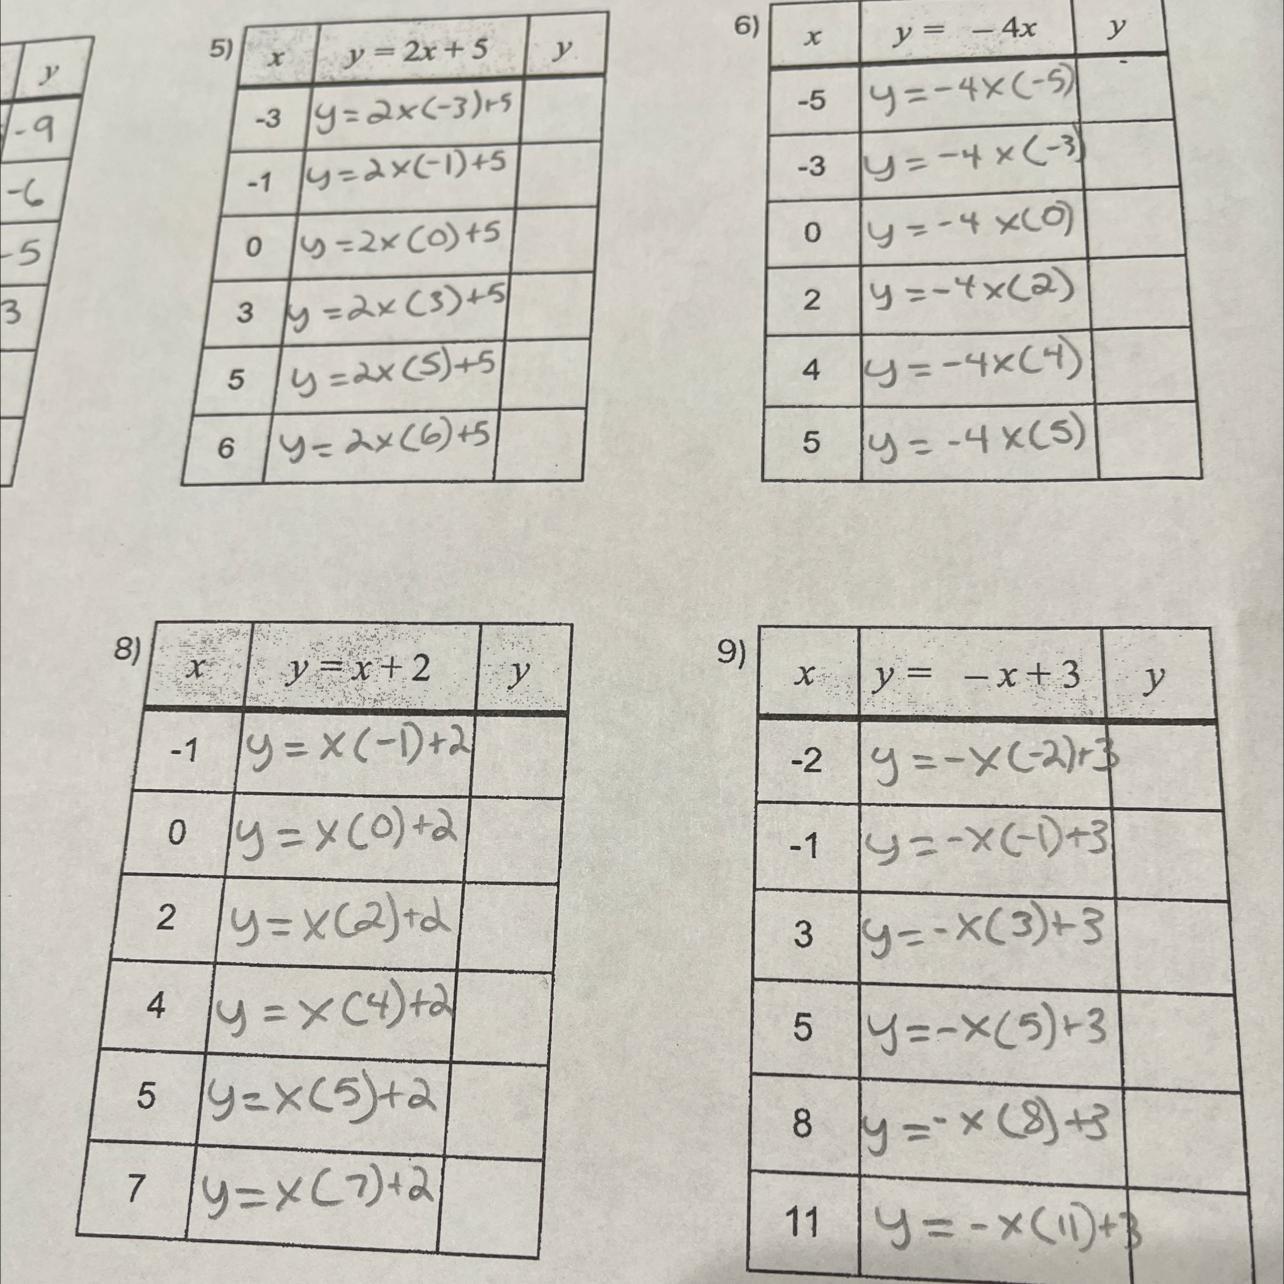 y
-9
-6
-5
3
5) x y = 2x + 5 y
-3 y=2x(-3)+5
-1 y=2x(-1)+5
0 y=2x(0)+5
3 y=2x(3)+5
5 y=2x(5)+5
6 y=2x(6)+5
6) x y = - 4x y
-5 y=-4x(-5)
-3 y=-4x(-3)
0 y=-4x(0)
2 y=-4x(2)
4 y=-4x(4)
5 y=-4x(5)
8) x y = x + 2 y
-1 y=x(-1)+2
0 y=x(0)+2
2 y=x(2)+2
4 y=x(4)+2
5 y=x(5)+2
7 y=x(7)+2
9) x y = - x + 3 y
-2 y=-x(-2)+3
-1 y=-x(-1)+3
3 y=-x(3)+3
5 y=-x(5)+3
8 y=-x(8)+3
11 y=-x(11)+3